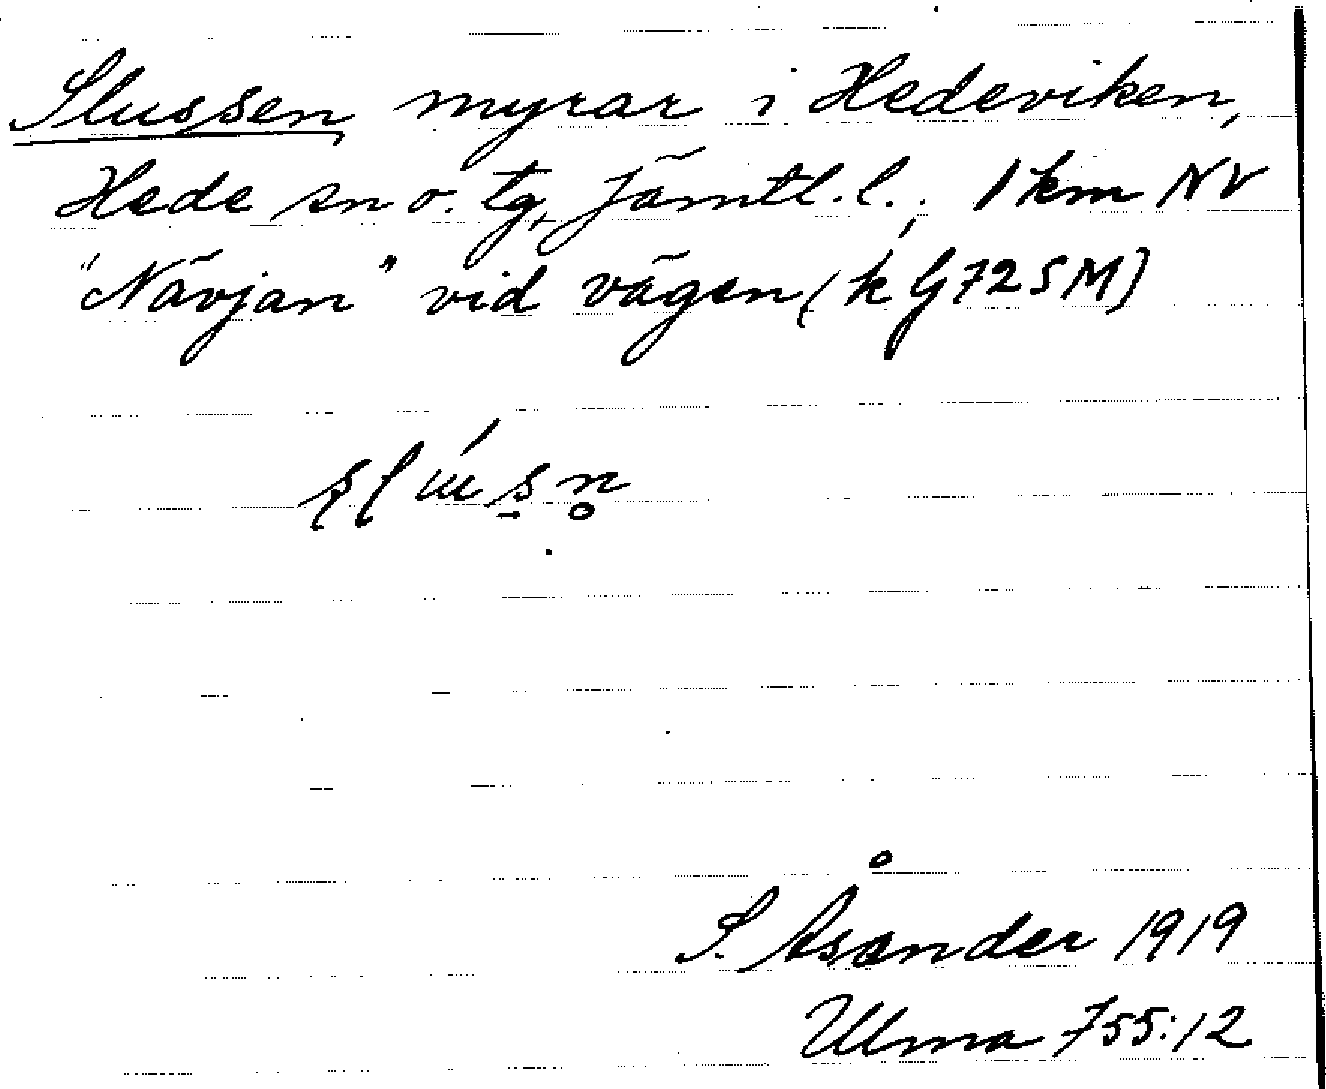 Slussen, myrar i Hedeviken,
Hede sn o. tg, Jämtl. l., 1 km NV
"Nävjan" vid vägen (k G72SM)
S. Åsander 1919
Ulma 755:12